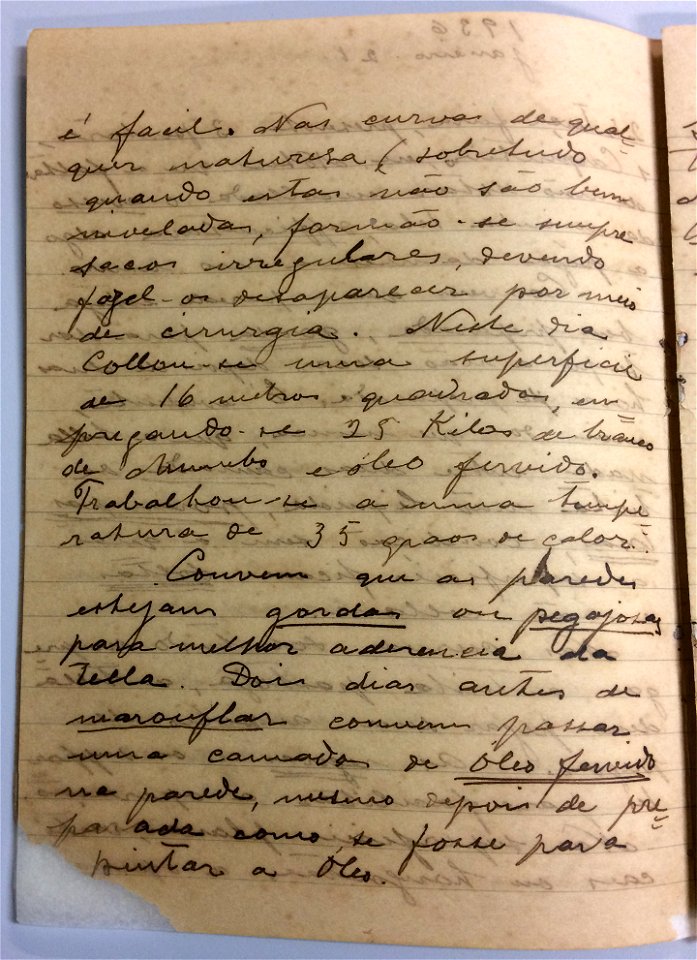 é facil. Nas curvas de qual-
quer naturesa (sobretudo
quando estas não são bem
niveladas, formão-se sempre
sacos irregulares, devendo
fazel-os desaparecer por meio
de cirurgia. Neste dia
Collou-se uma superficie
de 16 metros quadrados, em
pregando-se 25 Kilos de branco
de chumbo e óleo fervido.
Trabalhou-se a uma tempe
ratura de 35 graos de calor.
Convem que as paredes
estejam gordas ou pegajosas
para melhor aderencia da
tella. Dois dias antes de
marouflar convem passar
uma camada de óleo fervido
na parede, mesmo depois de pre
parada como se fosse para
pintar a Oleo.